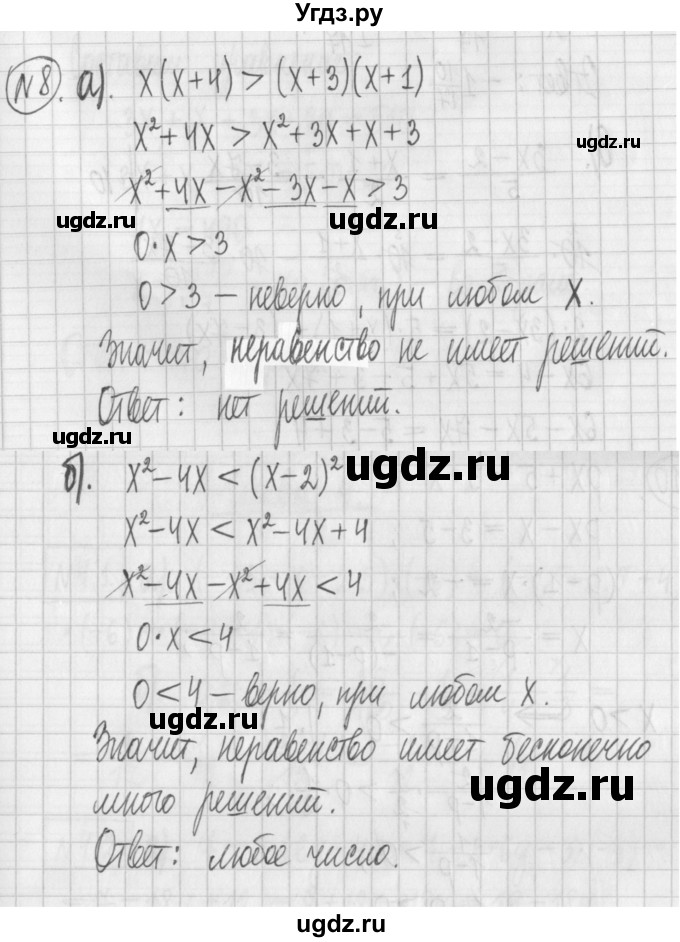 Угдз.ру
№8. а). x(x+4) > (x+3)(x+1)
x²+4x > x²+3x+x+3
ugdz.ru
x²+4x-x²-3x-x>3
ugdz.ru ugdz.ru
0·x>3
0>3 – неверно, при любом x.
ugdz.ru
Значит, неравенство не имеет решений.
Ответ: нет решений.
ugdz.ru
б). x²-4x<(x-2)²
ugdz.ru
x²-4x<x²-4x+4
x²-4x-x²+4x<4
0·x<4
0<4 – верно, при любом x.
ugdz.ru
Значит, неравенство имеет бесконечно
ugdz.ru
много решений.
Ответ: любое число.
ugdz.ru
ugdz.ru